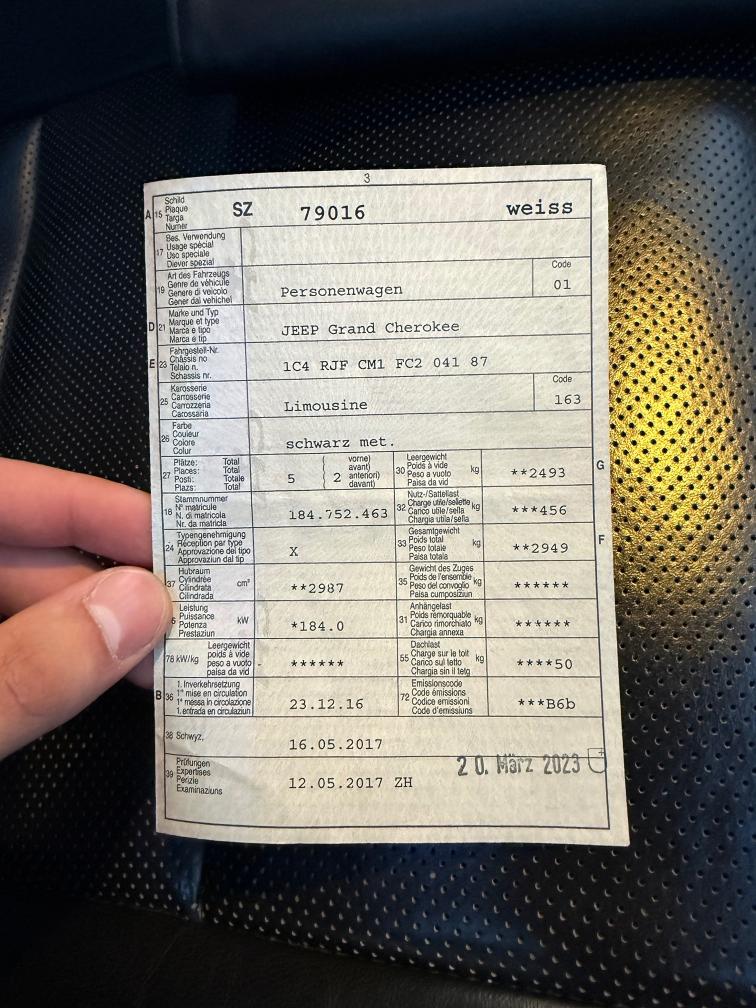 3
A 15 Schild
Plaque
Targa
Numer
SZ 79016 weiss
17 Bes. Verwendung
Usage spécial
Uso speciale
Diever spezial
19 Art des Fahrzeugs
Genre de véhicule
Genere di veicolo
Gener dal vehichel
Personenwagen
Code
01
D 21 Marke und Typ
Marque et type
Marca e tipo
Marca e tip
JEEP Grand Cherokee
E 23 Fahrgestell-Nr.
Châssis no
Telaio n.
Schassis nr.
1C4 RJF CM1 FC2 041 87
25 Karosserie
Carrosserie
Carrozzeria
Carossaria
Limousine
Code
163
26 Farbe
Couleur
Colore
Colur
schwarz met.
27 Plätze: Total
Places: Total
Posti: Totale
Plazs: Total
5 2 vorne)
avant)
anteriori)
davant)
30 Leergewicht
Poids à vide
Peso a vuoto
Paisa da vid
kg
**2493
G
18 Stammnummer
N° matricule
N. di matricola
Nr. da matricla
184.752.463
32 Nutz-/Sattellast
Charge utile/sellette
Carico utile/sella
Chargia utila/sella
kg
***456
24 Typengenehmigung
Réception par type
Approvazione del tipo
Approvaziun dal tip
X
33 Gesamtgewicht
Poids total
Peso totale
Paisa totala
kg
**2949
F
37 Hubraum
Cylindrée
Cilindrata
Cilindrada
cm³
**2987
35 Gewicht des Zuges
Poids de l'ensemble
Peso del convoglio
Paisa cumposiziun
kg
******
Leistung
Puissance
Potenza
Prestaziun
kW
*184.0
31 Anhängelast
Poids remorquable
Carico rimorchiato
Chargia annexa
kg
******
78 kW/kg Leergewicht
poids à vide
peso a vuoto
paisa da vid
******
55 Dachlast
Charge sur le toit
Carico sul tetto
Chargia sin il tetg
kg
****50
B 36 1. Inverkehrsetzung
1re mise en circulation
1a messa in circolazione
1. entrada en circulaziun
23.12.16
72 Emissionscode
Code émissions
Codice emissioni
Code d'emissiuns
***B6b
38 Schwyz,
16.05.2017
39 Prüfungen
Expertises
Perizie
Examinaziuns
12.05.2017 ZH
20. März 2023